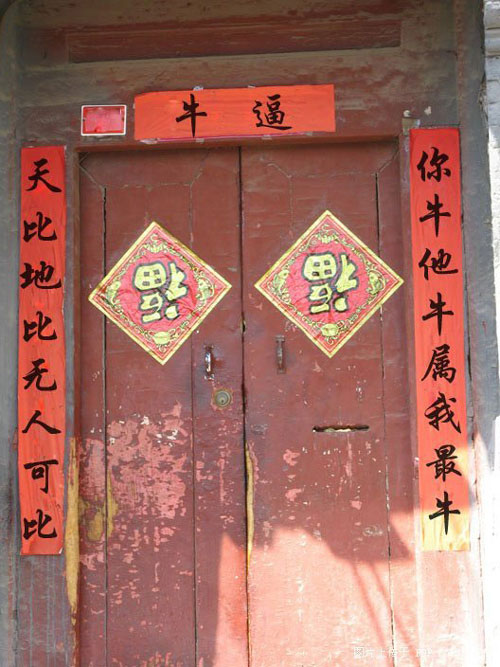 牛逼
天比地比无人可比
你牛他牛属我最牛
福
福